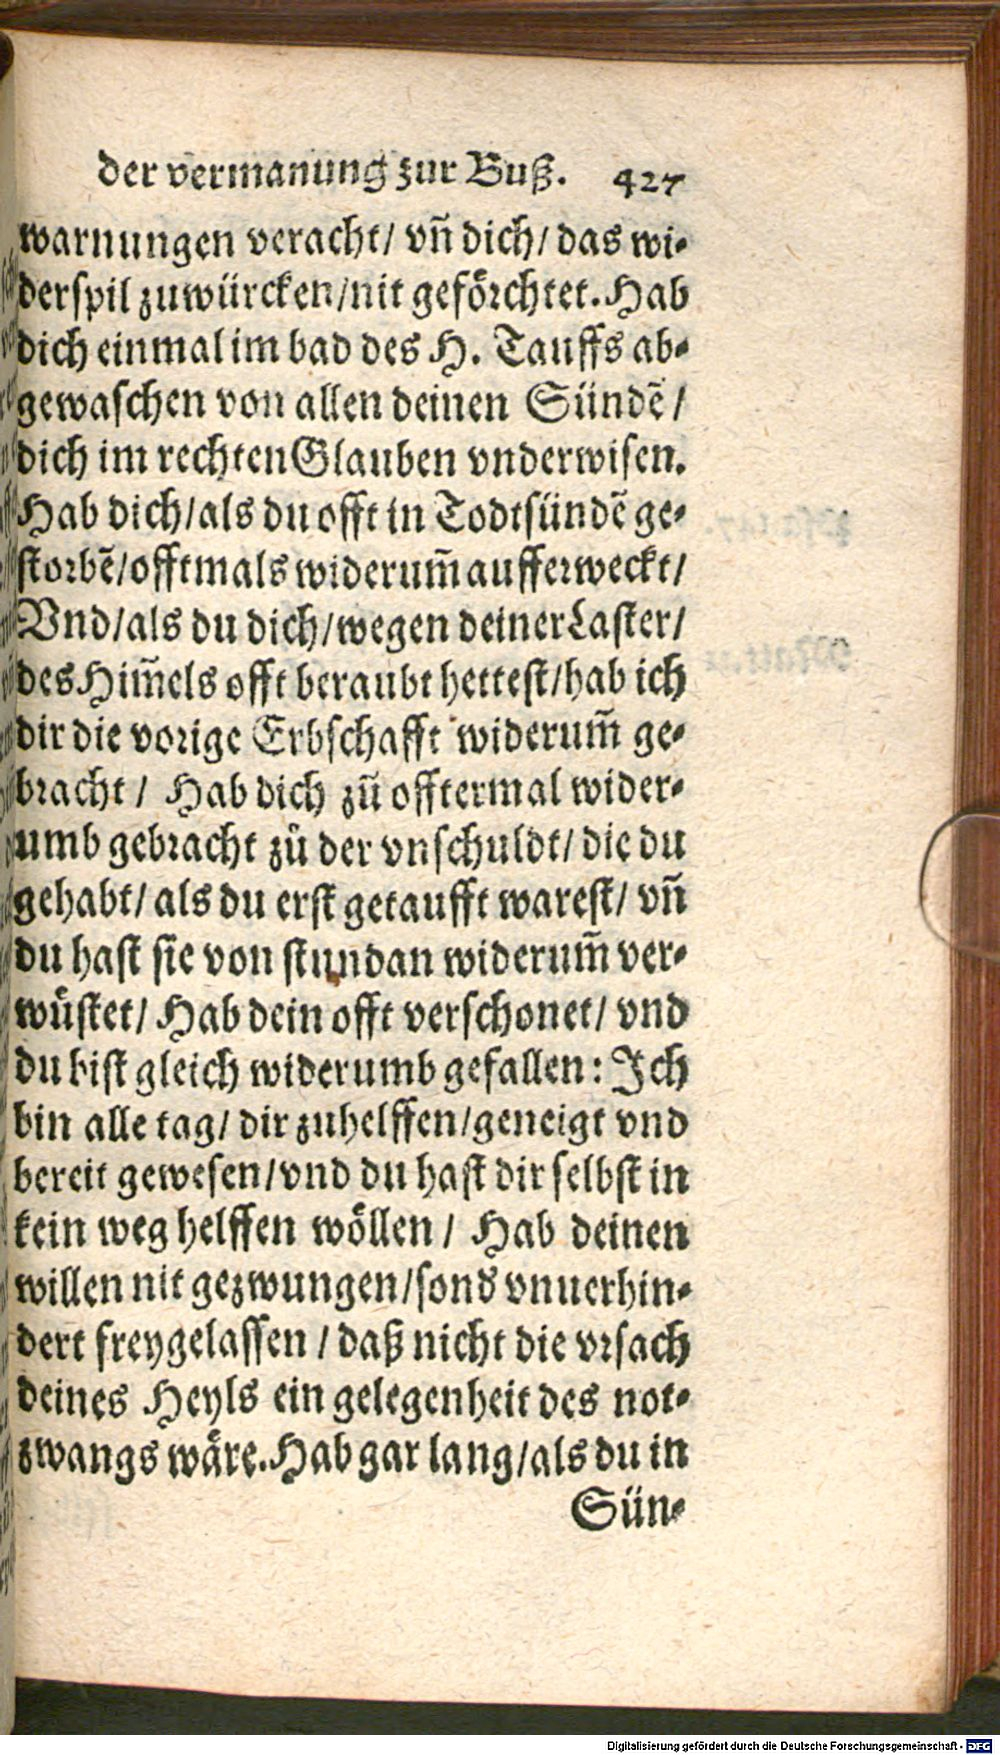 der vermanung zur Buß. 427
warnungen veracht/ vñ dich/ das wi-
derspil zuwürcken/nit geförchtet. Hab
dich einmal im bad des H. Tauffs ab-
gewaschen von allen deinen Sündẽ /
dich im rechten Glauben vnderwisen.
Hab dich/als du offt in Todtsündẽ ge-
storbẽ/offtmals widerum̃ aufferweckt/
Vnd/als du dich/wegen deiner Laster/
des Him̃els offt beraubt hettest/hab ich
dir die vorige Erbschafft widerum̃ ge-
bracht / Hab dich zů offtermal wider-
umb gebracht zů der vnschuldt/ die du
gehabt/ als du erst getaufft warest/ vñ
du hast sie von stundan widerum̃ ver-
wüstet/ Hab dein offt verschonet/ vnd
du bist gleich widerumb gefallen: Ich
bin alle tag/ dir zuhelffen/geneigt vnd
bereit gewesen/vnd du hast dir selbst in
kein weg helffen wöllen / Hab deinen
willen nit gezwungen/sond vnuerhin-
dert freygelassen / daß nicht die vrsach
deines Heyls ein gelegenheit des not-
zwangs wäre. Hab gar lang/als du in
Sün-
Digitalisierung gefördert durch die Deutsche Forschungsgemeinschaft - DFG